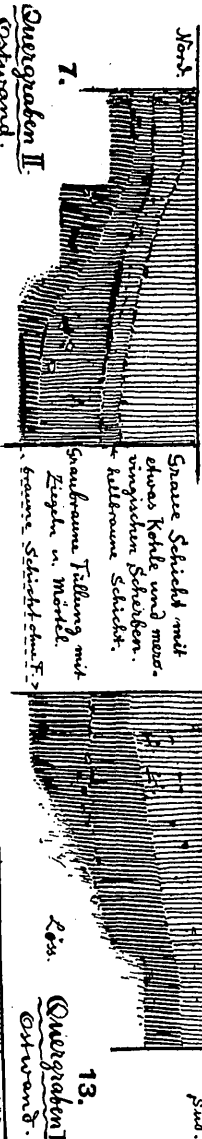 Nord.
7.
Quergraben II.
Ostwand.
Graue Schicht mit
etwas Kohle und mero-
vingischen Scherben.
hellbraune Schicht.
Graubraune Füllung mit
Ziegeln u. Mörtel.
braune Schicht ohne F.
Löss.
Süd.
13.
Quergraben I
Ostwand.